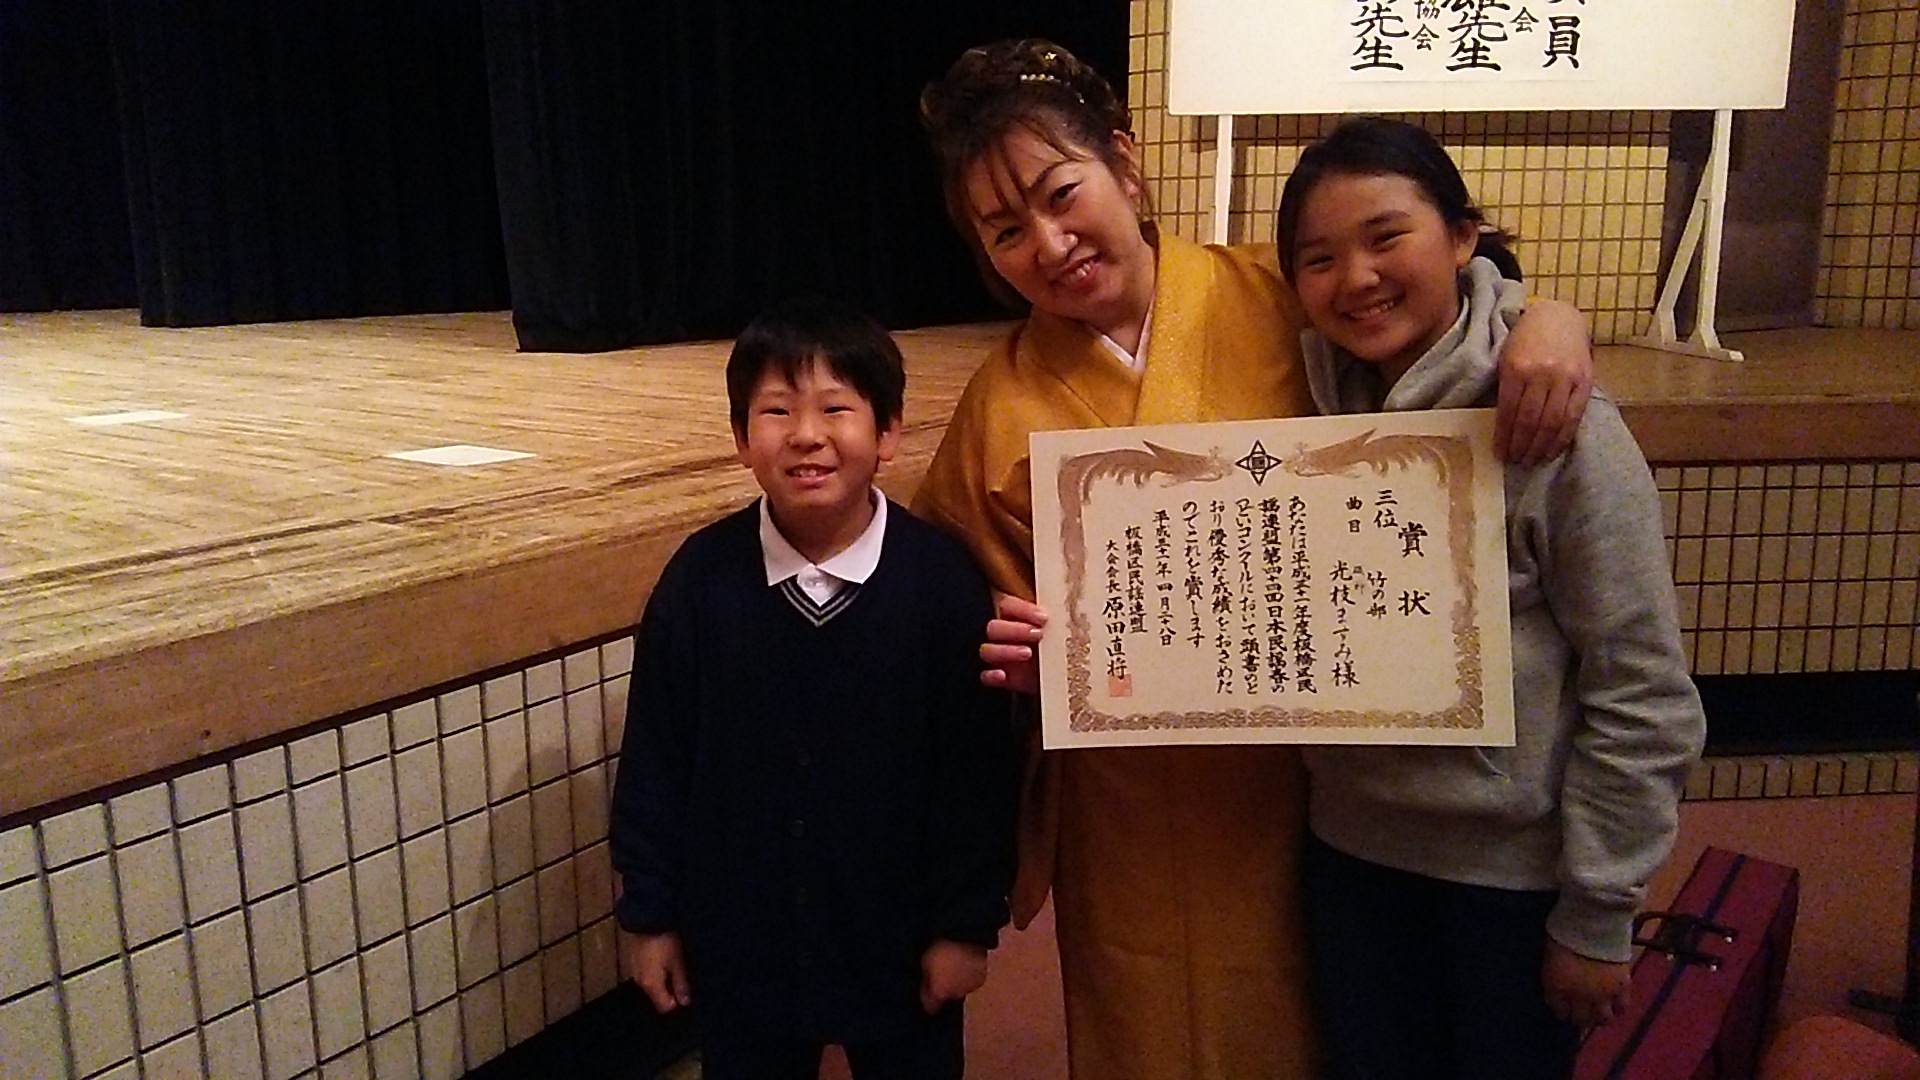 員
会
雄先生
協会
先生
賞状
三位 竹の部
曲目 磯節 光枝ますみ様
あなたは平成三十一年度板橋区民
謡連盟第四十四回日本民謡春の
つどいコンクールにおいて頭書のと
おり優秀な成績をおさめた
のでこれを賞します
平成三十一年四月二十八日
板橋区民謡連盟
大会会長 原田直将